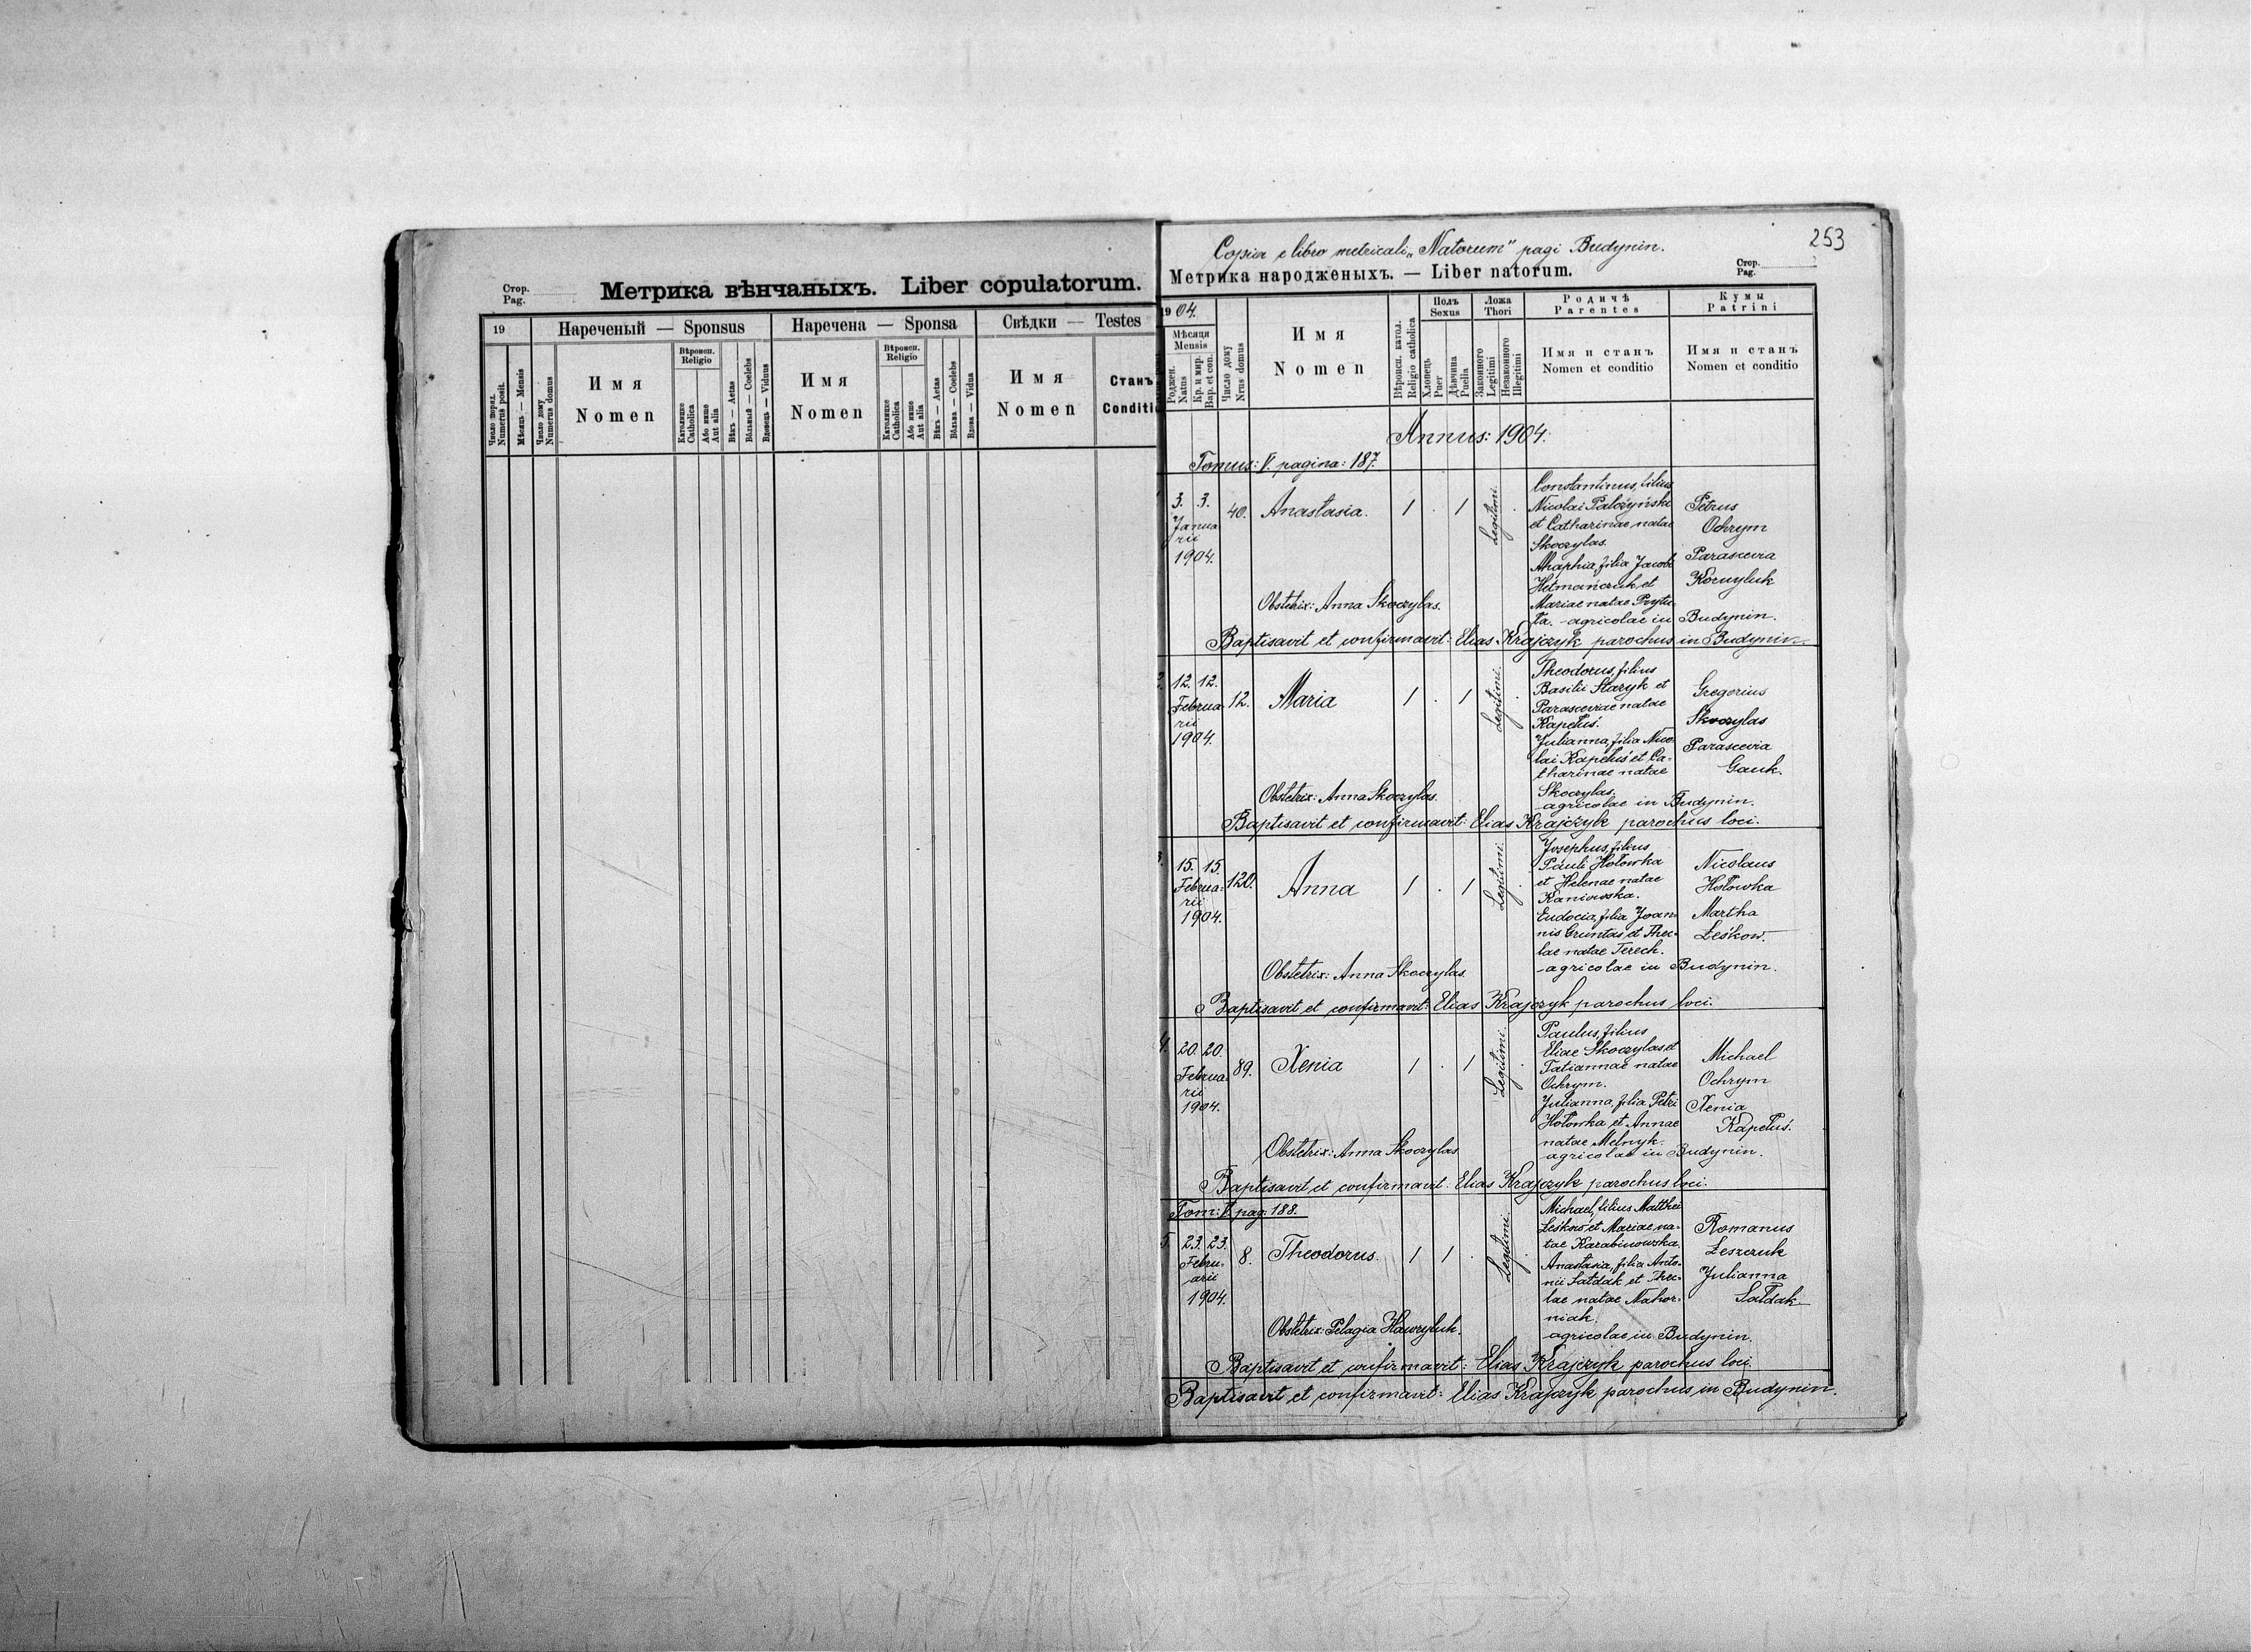 Стор.
Pag.
Метрика вѣнчаныхъ. Liber copulatorum.
19
Нареченый — Sponsus
Наречена — Sponsa
Свѣдки — Testes
Число поряд.
Numerus posit.
Мѣсяць — Mensis
Число дому
Numerus domus
Имя
Nomen
Вѣроисп.
Religio
Католицке
Catholica
Або инше
Aut alia
Вѣкъ — Aetas
Вôльный — Coelebs
Вдовець — Viduus
Имя
Nomen
Вѣроисп.
Religio
Католицке
Catholica
Або инше
Aut alia
Вѣкъ — Aetas
Вôльна — Coelebs
Вдова — Vidua
Имя
Nomen
Станъ
Conditi
253
Copia e libro metricali „Natorum" pagi Budynin.
Метрика народженыхъ. — Liber natorum.
Стор.
Pag.
1904.
Мѣсяця
Mensis
Роджен.
Natus
Кр. и мир.
Bap. et con.
Число дому
Nrus domus
Имя
Nomen
Вѣроисп. катол.
Religio catholica
Полъ
Sexus
Хлопець
Puer
Дѣвчина
Puella
Ложа
Thori
Законного
Legitimi
Незаконного
Illegitimi
Родичѣ
Parentes
Имя и станъ
Nomen et conditio
Кумы
Patrini
Имя и станъ
Nomen et conditio
Annus: 1904.
Tomus: V. pagina: 187.
3. 3.
Janua
rii
1904.
40.
Anastasia.
1 . 1
Legitimi.
.
Constantinus, filius
Nicolai Pałczyński
et Catharinae natae
Skoczylas.
Ahaphia, filia Jacobi
Hetmańczuk et
Mariae natae Prytu-
ła. - agricolae in Budynin.
Petrus
Ochrym
Parascevia
Kornyluk
Obstetrix: Anna Skoczylas.
Baptisavit et confirmavit: Elias Krajczyk parochus in Budynin.
2.
12. 12.
Februa
rii
1904.
12.
Maria
1 . 1
Legitimi.
.
Theodorus, filius
Basilii Staryk et
Parasceviae natae
Kapeluś.
Julianna, filia Nico-
lai Kapeluś et Ca-
tharinae natae
Skoczylas.
agricolae in Budynin.
Gregorius
Skoczylas
Parascevia
Gauk.
Obstetrix: Anna Skoczylas.
Baptisavit et confirmavit: Elias Krajczyk parochus loci.
3.
15. 15.
Februa-
rii
1904.
120.
Anna
1 . 1
Legitimi.
.
Josephus, filius
Pauli Hołowka
et Helenae natae
Kaniowska.
Eudocia, filia Joan-
nis Gruntas, et Thec-
lae natae Terech.
-agricolae in Budynin.
Nicolaus
Hołowka
Martha
Leśkow.
Obstetrix: Anna Skoczylas.
Baptisavit et confirmavit: Elias Krajczyk parochus loci.
4.
20. 20.
Februa-
rii
1904.
89.
Xenia
1 . 1
Legitimi.
.
Paulus, filius
Eliae Skoczylas et
Tatiannae natae
Ochrym.
Julianna, filia Petri
Hołowka et Annae
natae Melnyk.
agricolae in Budynin.
Michael
Ochrym
Xenia
Kapeluś.
Obstetrix: Anna Skoczylas
Baptisavit et confirmavit: Elias Krajczyk parochus loci.
Tom: V. pag: 188.
5.
23. 23.
Febru-
arii
1904.
8.
Theodorus.
1 1 .
Legitimi.
.
Michael, filius Matthei
Leśkow et Mariae na-
tae Karabinowska.
Anastasia, filia Anto-
nii Sałdak et Thec-
lae natae Nahor-
niak.
agricolae in Budynin.
Romanus
Leszczuk
Julianna
Sałdak
Obstetrix: Pelagia Hawryluk.
Baptisavit et confirmavit: Elias Krajczyk parochus loci.
Baptisavit et confirmavit: Elias Krajczyk parochus in Budynin.